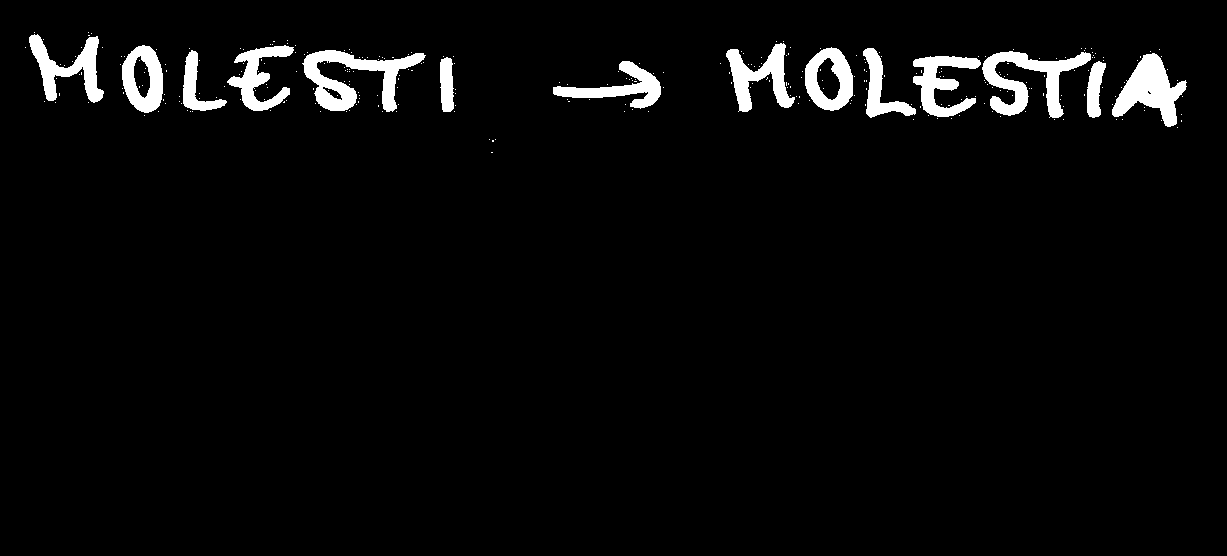 MOLESTI → MOLESTIA